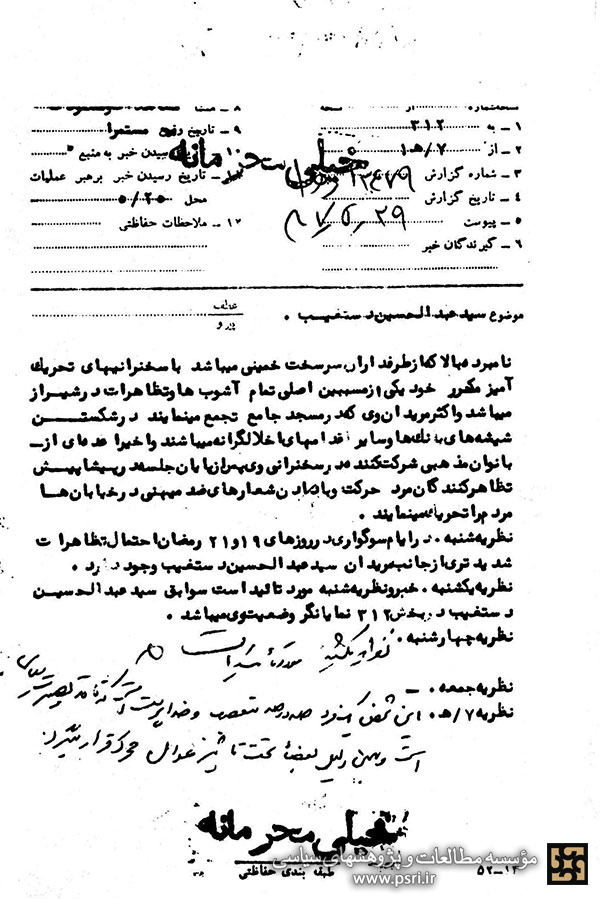 ۱ ـ به ۳۱۲
۲ ـ از ۷/ ه‍ ۱
۳ ـ شماره گزارش
۴ ـ تاریخ گزارش
۵ ـ پیوست
۶ ـ گیرندگان خبر
۹ ـ تاریخ وقوع مستمرا
۱۰ رسیدن خبر به منبع
تاریخ رسیدن خبر برهبر عملیات
محل ۵/۲۵۰
۱۲ ـ ملاحظات حفاظتی
خیلی محرمانه
موضوع سید عبدالحسین دستغیب .
عطف
پیرو
نامبرده بالا که از طرفداران سرسخت خمینی میباشد با سخنرانیهای تحریک
آمیز مکرر خود یکی از مسببین اصلی تمام آشوب ها و تظاهرات در شیراز
میباشد و اکثر مریدان وی که در مسجد جامع تجمع مینمایند در شکستن
شیشه های بانک ها و سایر اقدامهای اخلالگرانه میباشند و اخیرا عده ای از ـ
بانوان مذهبی شرکت کننده در سخنرانی وی پس از پایان جلسه در پیشاپیش
تظاهر کنندگان مرد حرکت و با دادن شعارهای ضد میهنی در خیابان ها
مردم را تحریک مینمایند .
نظریه شنبه . در ایام سوگواری در روزهای ۱۹ و ۲۱ رمضان احتمال تظاهرات
شدیدتری از جانب مریدان سید عبدالحسین دستغیب وجود دارد .
نظریه یکشنبه . خبر و نظریه شنبه مورد تائید است سوابق سید عبدالحسین
دستغیب در بخش ۳۱۲ نمایانگر وضعیت وی میباشد .
نظریه چهارشنبه . نظریه یکشنبه مورد تائید است
نظریه جمعه . ـ
نظریه ۷/ه‍ . این شخص
است و بهمین دلیل بعضاً تحت تاثیر عوامل محرک قرار میگیرد
خیلی محرمانه
طبقه بندی حفاظتی
۱۲ـ۵۲
مؤسسه مطالعات و پژوهشهای سیاسی
www.psri.ir